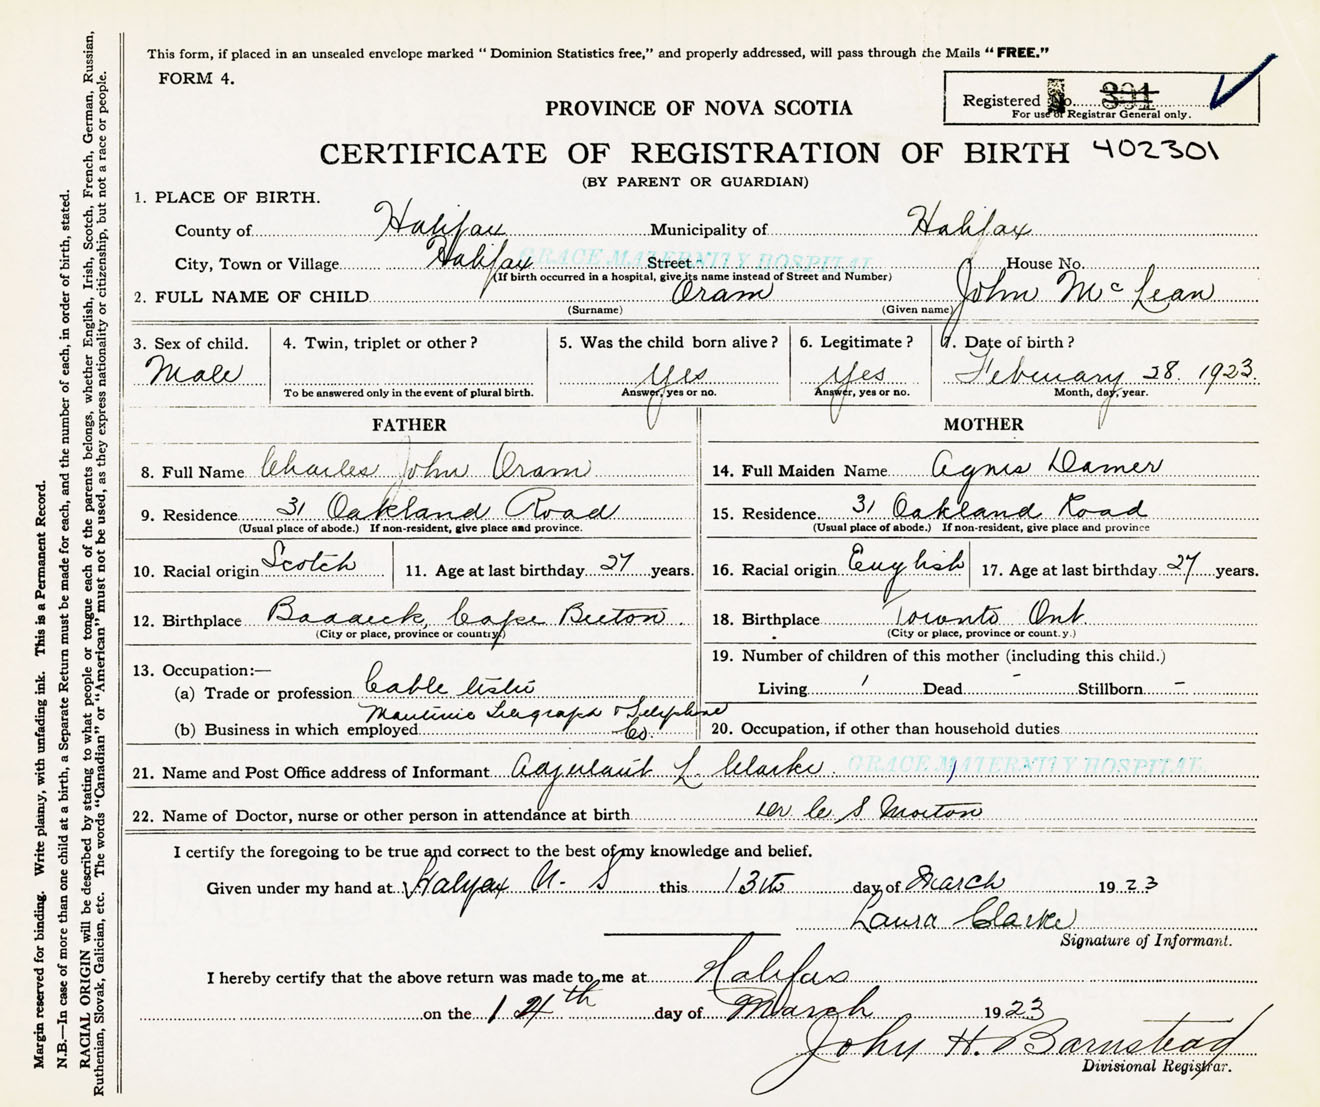 This form, if placed in an unsealed envelope marked " Dominion Statistics free," and properly addressed, will pass through the Mails " FREE."
FORM 4.
Registered No. 391
For use of Registrar General only.
PROVINCE OF NOVA SCOTIA
CERTIFICATE OF REGISTRATION OF BIRTH 402301
(BY PARENT OR GUARDIAN)
1. PLACE OF BIRTH.
County of Halifax Municipality of Halifax
City, Town or Village Halifax Street GRACE MATERNITY HOSPITAL House No.
(If birth occurred in a hospital, give its name instead of Street and Number)
2. FULL NAME OF CHILD Oram John McLean
(Surname) (Given name)
3. Sex of child. 4. Twin, triplet or other ? 5. Was the child born alive ? 6. Legitimate ? 7. Date of birth ?
Male Yes Yes February 28. 1923.
To be answered only in the event of plural birth. Answer, yes or no. Answer, yes or no. Month, day, year.
FATHER MOTHER
8. Full Name Charles John Oram 14. Full Maiden Name Agnes Damer
9. Residence 31 Oakland Road 15. Residence 31 Oakland Road
(Usual place of abode.) If non-resident, give place and province. (Usual place of abode.) If non-resident, give place and province
10. Racial origin Scotch 11. Age at last birthday 27 years. 16. Racial origin English 17. Age at last birthday 27 years.
12. Birthplace Baddeck, Cape Breton. 18. Birthplace Toronto Ont
(City or place, province or county) (City or place, province or count.y.)
13. Occupation:— 19. Number of children of this mother (including this child.)
(a) Trade or profession Cable Living 1 Dead - Stillborn -
Maritime Telegraph & Telephone
(b) Business in which employed Co. 20. Occupation, if other than household duties
21. Name and Post Office address of Informant Adjutant L. Clarke. GRACE MATERNITY HOSPITAL
22. Name of Doctor, nurse or other person in attendance at birth Dr C S Morton
I certify the foregoing to be true and correct to the best of my knowledge and belief.
Given under my hand at Halifax N. S this 13th day of March 1923
Laura Clarke
Signature of Informant.
I hereby certify that the above return was made to me at Halifax
on the 14th day of March 1923
John H. Barnstead
Divisional Registrar.
Margin reserved for binding. Write plainly, with unfading ink. This is a Permanent Record.
N.B.—In case of more than one child at a birth, a Separate Return must be made for each, and the number of each, in order of birth, stated.
RACIAL ORIGIN will be described by stating to what people or tongue each of the parents belongs, whether English, Irish, Scotch, French, German, Russian,
Ruthenian, Slovak, Galician, etc. The words "Canadian" or "American" must not be used, as they express nationality or citizenship, but not a race or people.